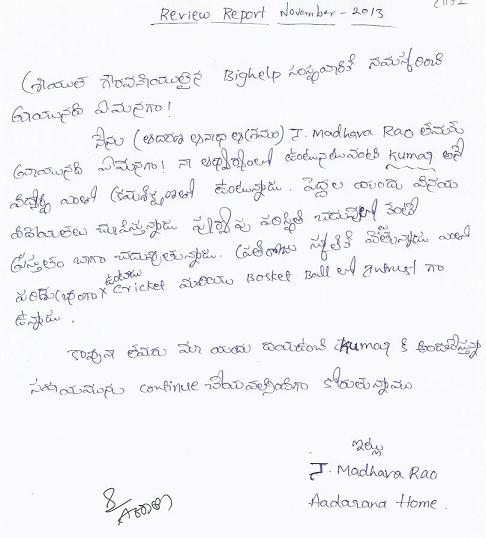 Review Report November - 2013
శ్రీయుత గౌరవనీయులైన Bighelp సంస్థవారికి నమస్కరించి
వ్రాయునది ఏమనగా!
నేను (ఆదరణ అనాధ ఆశ్రమం) J. Madhava Rao తమకు
వ్రాయునది ఏమనగా! నా ఆధ్వర్యంలో ఉంటున్నటువంటి Kumar అనే
విద్యార్థి ఎంతో క్రమశిక్షణతో ఉంటున్నాడు. పెద్దల యందు వినయ
విధేయతలు చూపిస్తున్నాడు పూర్వపు పరిస్థితి చదువులో కంటే
ప్రస్తుతం బాగా చదువుతున్నాడు. ప్రతిరోజు స్కూల్ కి వెళ్తున్నాడు ఎంతో
శుభ్రంగా ఉంటాడు Cricket మరియు Basket Ball లో intrust గా
ఉన్నాడు.
కావున తమరు మా యందు దయఉంచి Kumar కి అందజేస్తున్న
సహాయమును continue చేయవలసిందిగా కోరుతున్నాము
ఇట్లు
J. Madhava Rao
Aadarana Home.